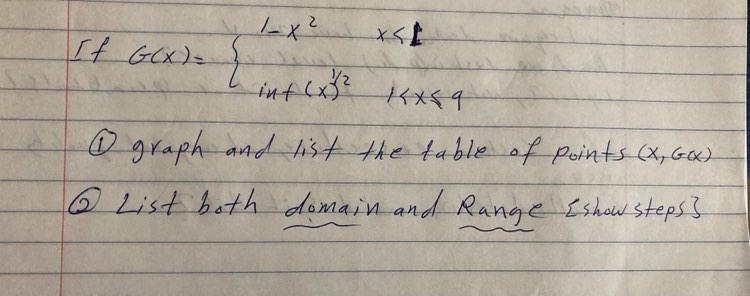 1-x² x≤1
If G(x)= {
int(x)^1/2)² 1<x≤9
① graph and list the table of points (x, G(x)
② List both domain and Range {show steps}